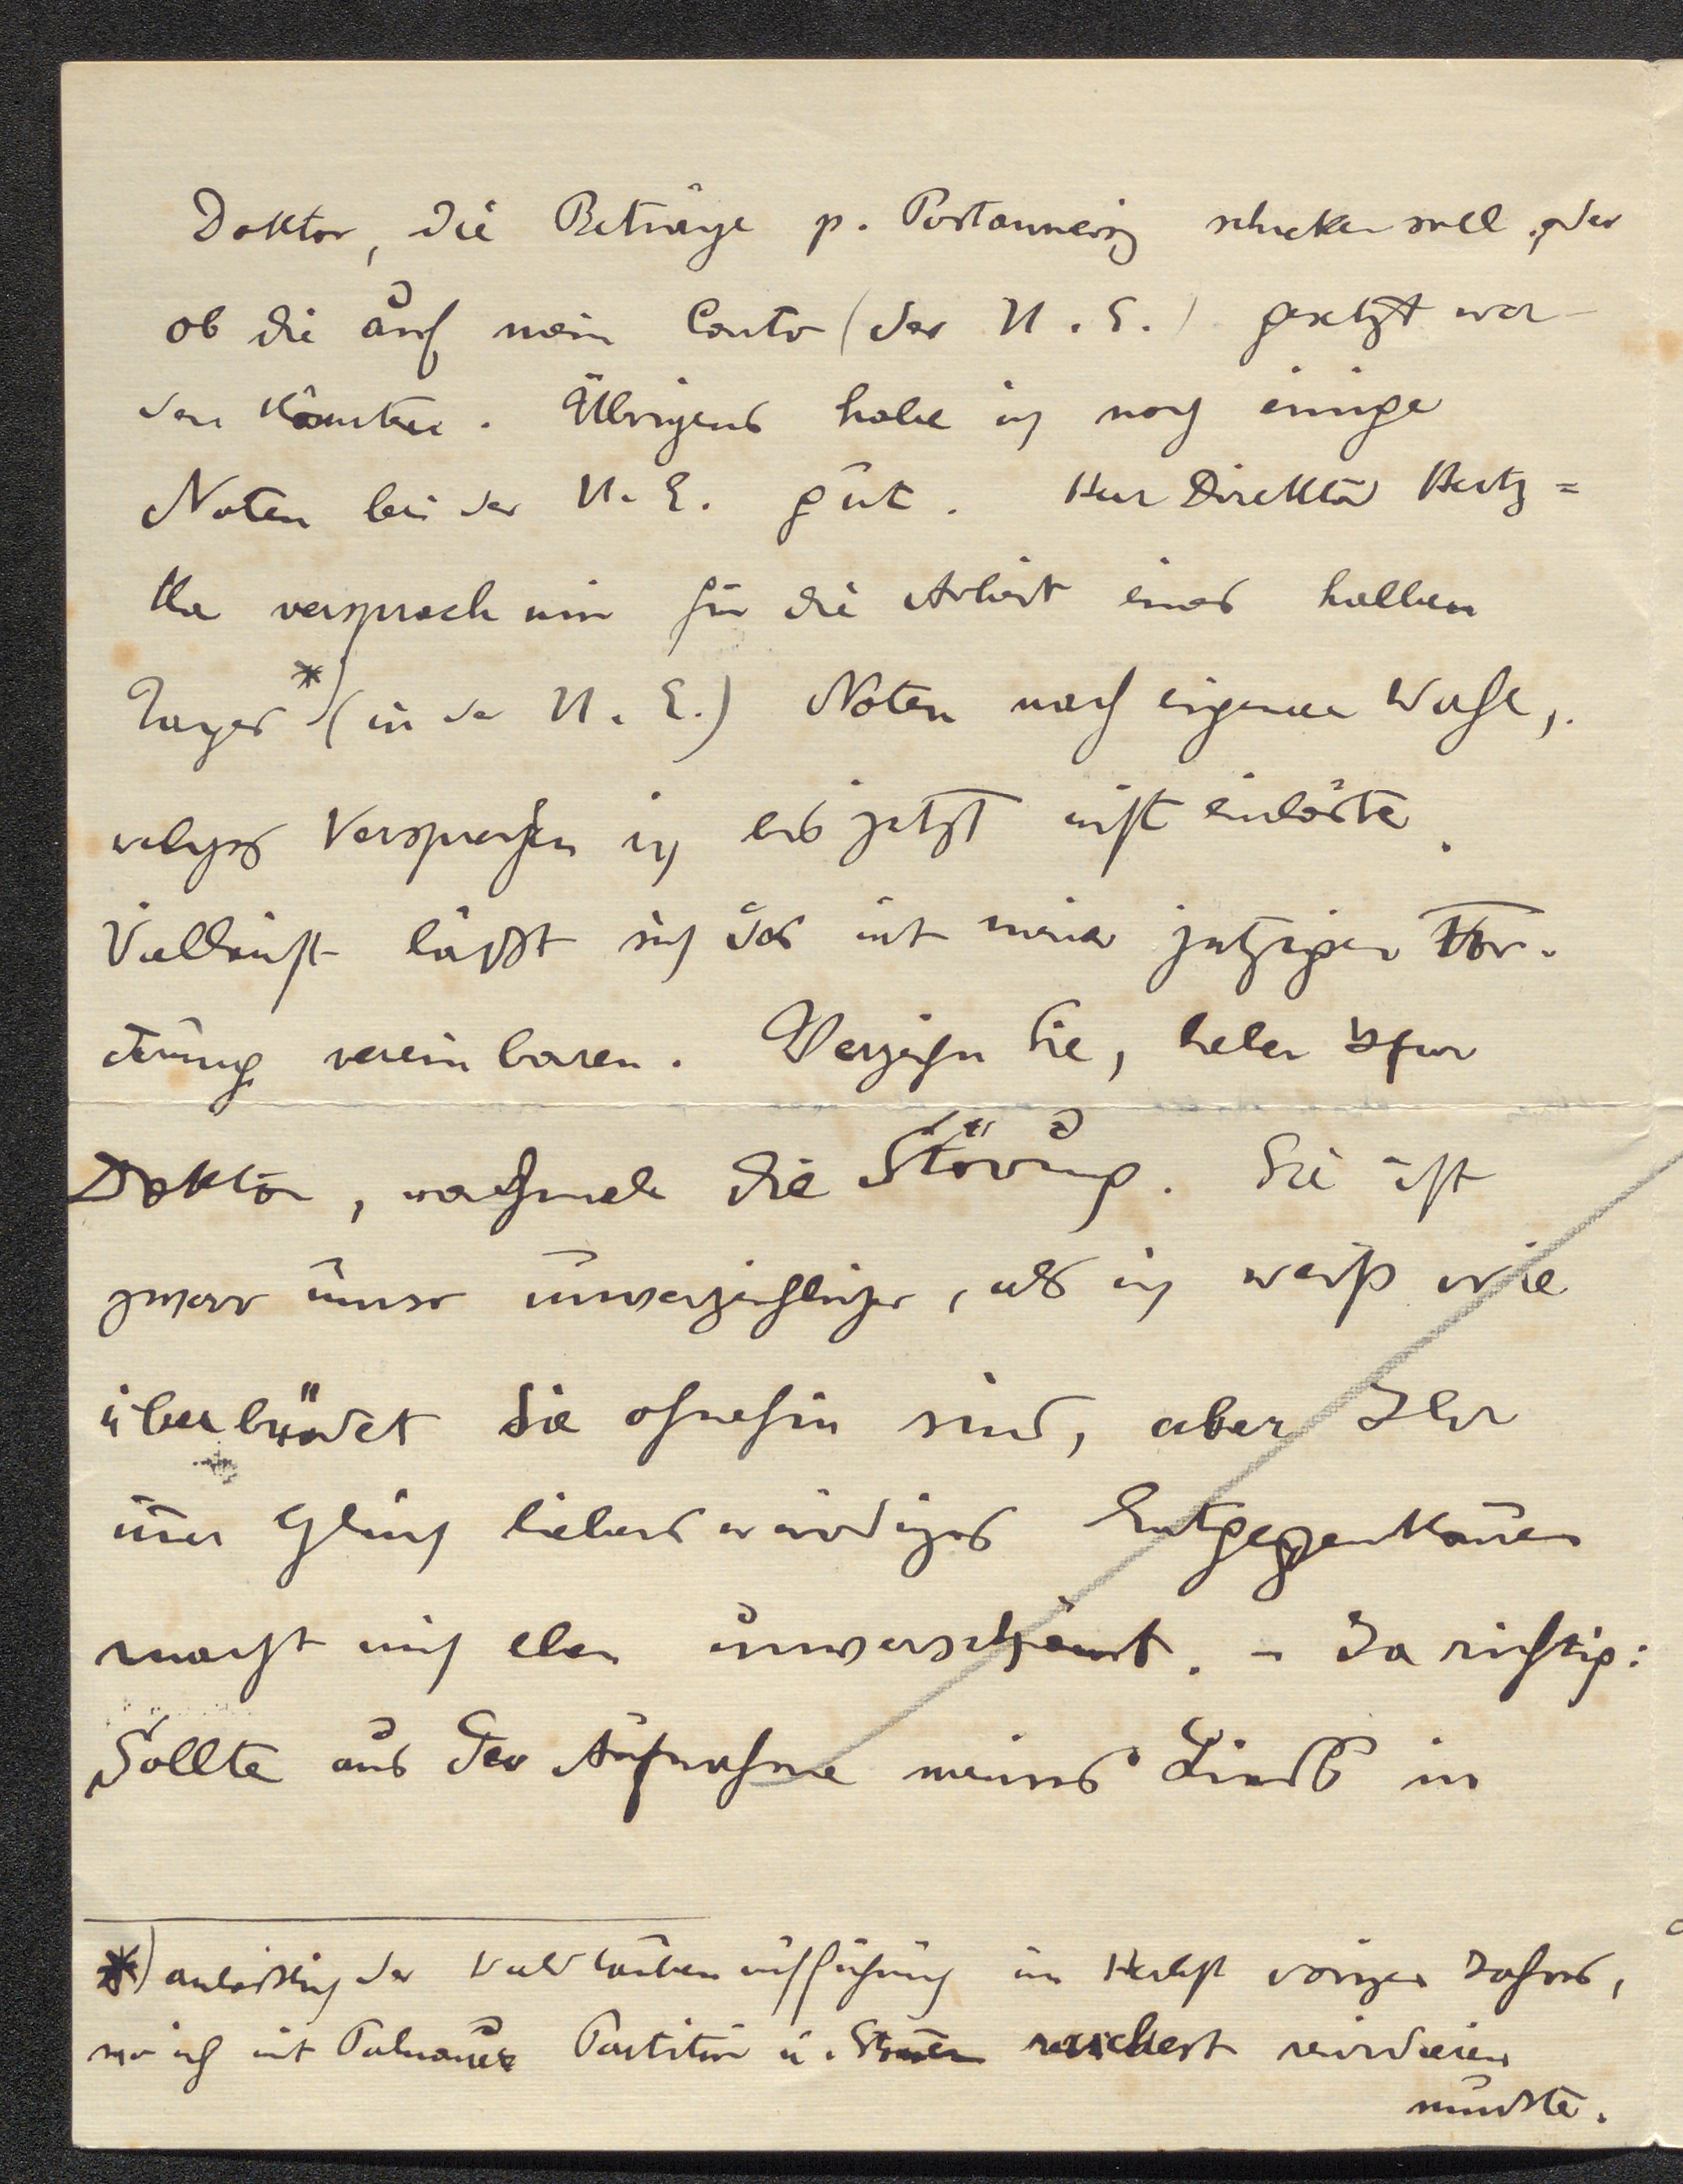 Doktor, die Beträge p. Postanweisg schicken soll, oder
ob die auf mein Conto (der U. E.) gesetzt wer-
den könnten. Übrigens habe ich noch einige
Noten bei der U. E. gut. Herr Direktor Hertz=
ka versprach mir für die Arbeit eines halben
Tages *) (in der U. E.) Noten nach eigener Wahl,
welches Versprechen ich bis jetzt nicht einlöste.
Vielleicht läßt sich das mit meiner jetzigen For-
derung vereinbaren. Verzeihn Sie, lieber Herr
Doktor, nochmals die Störung. Sie ist
zwar umso unverzeihlicher, als ich weiß wie
überbürdet Sie ohnehin sind, aber Ihr
immer gleich liebenswürdiges Entgegenkommen
macht mich eben unverschämt. – Ja richtig:
Sollte aus der Aufnahme meines Lieds in
*) anläßlich der Waldtaubenaufführung im Herbst vorigen Jahres,
wo ich mit Polnauer Partitur u. Stimmen revidieren
musste.